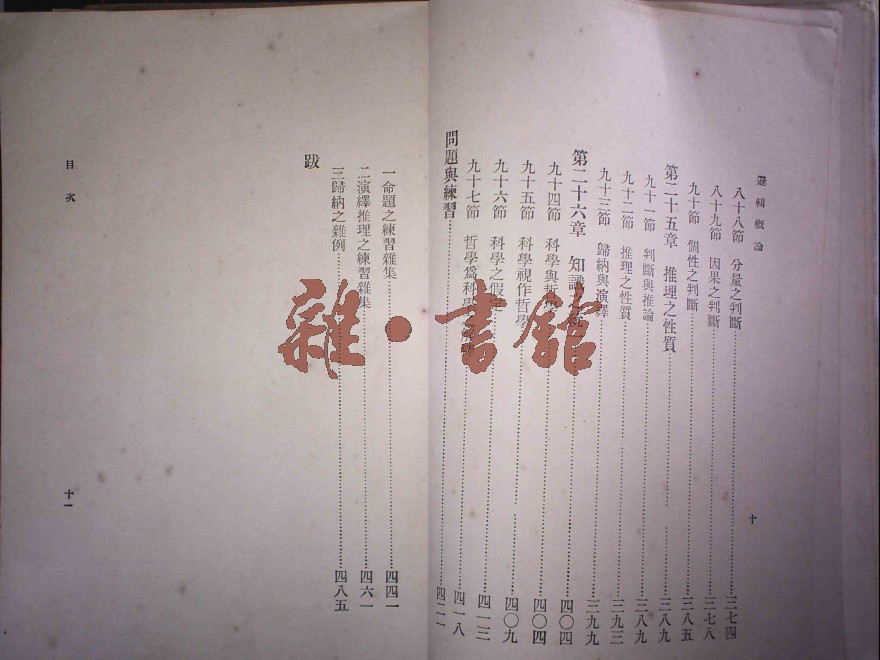 邏輯概論
八十八節 分量之判斷 三七四
八十九節 因果之判斷 三七八
九十節 個性之判斷 三八五
第二十五章 推理之性質 三八九
九十一節 判斷與推論 三八九
九十二節 推理之性質 三九三
九十三節 歸納與演繹 三九九
第二十六章 知識 四〇四
九十四節 科學與哲 四〇四
九十五節 科學視作哲學 四〇九
九十六節 科學之假定 四一三
九十七節 哲學爲科學 四一八
問題與練習 四二一
十
一命題之練習雜集 四四一
二演繹推理之練習雜集 四六一
三歸納之雜例 四八五
跋
目次
十一
雜·書館